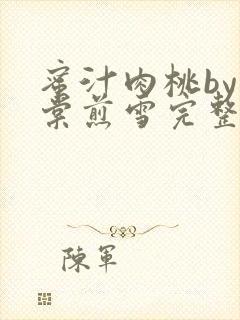 蜜汁肉桃by
棠煎雪完整
陳軍